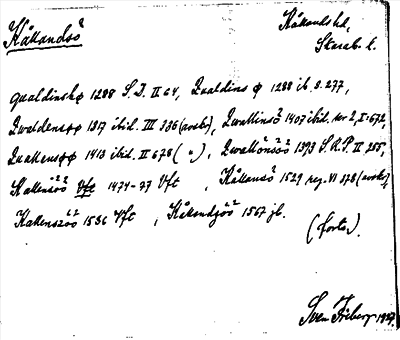 Kållandsö
Kållands hd,
Skarab. l.
qualdinshø 1288 S.D. II 64, Qvaldins ø 1288 ib. s. 277,
Qwaldensøø 1317 ibid. III 336 (avskr.), Qwallinsö 1407 ibid. nr 2, I: 672,
Quallensøø 1413 ibid. II 678 ( " ), Qwallönsöö 1393 S.R.P. II 255,
Kallensöö Vft 1474-77 Vft , Kållansö 1529 reg. VI 378 (avskr.),
Kallenszöö 1536 Vft , Kålandzöö 1567 jb.
(forts.).
Sven Friberg 1927.